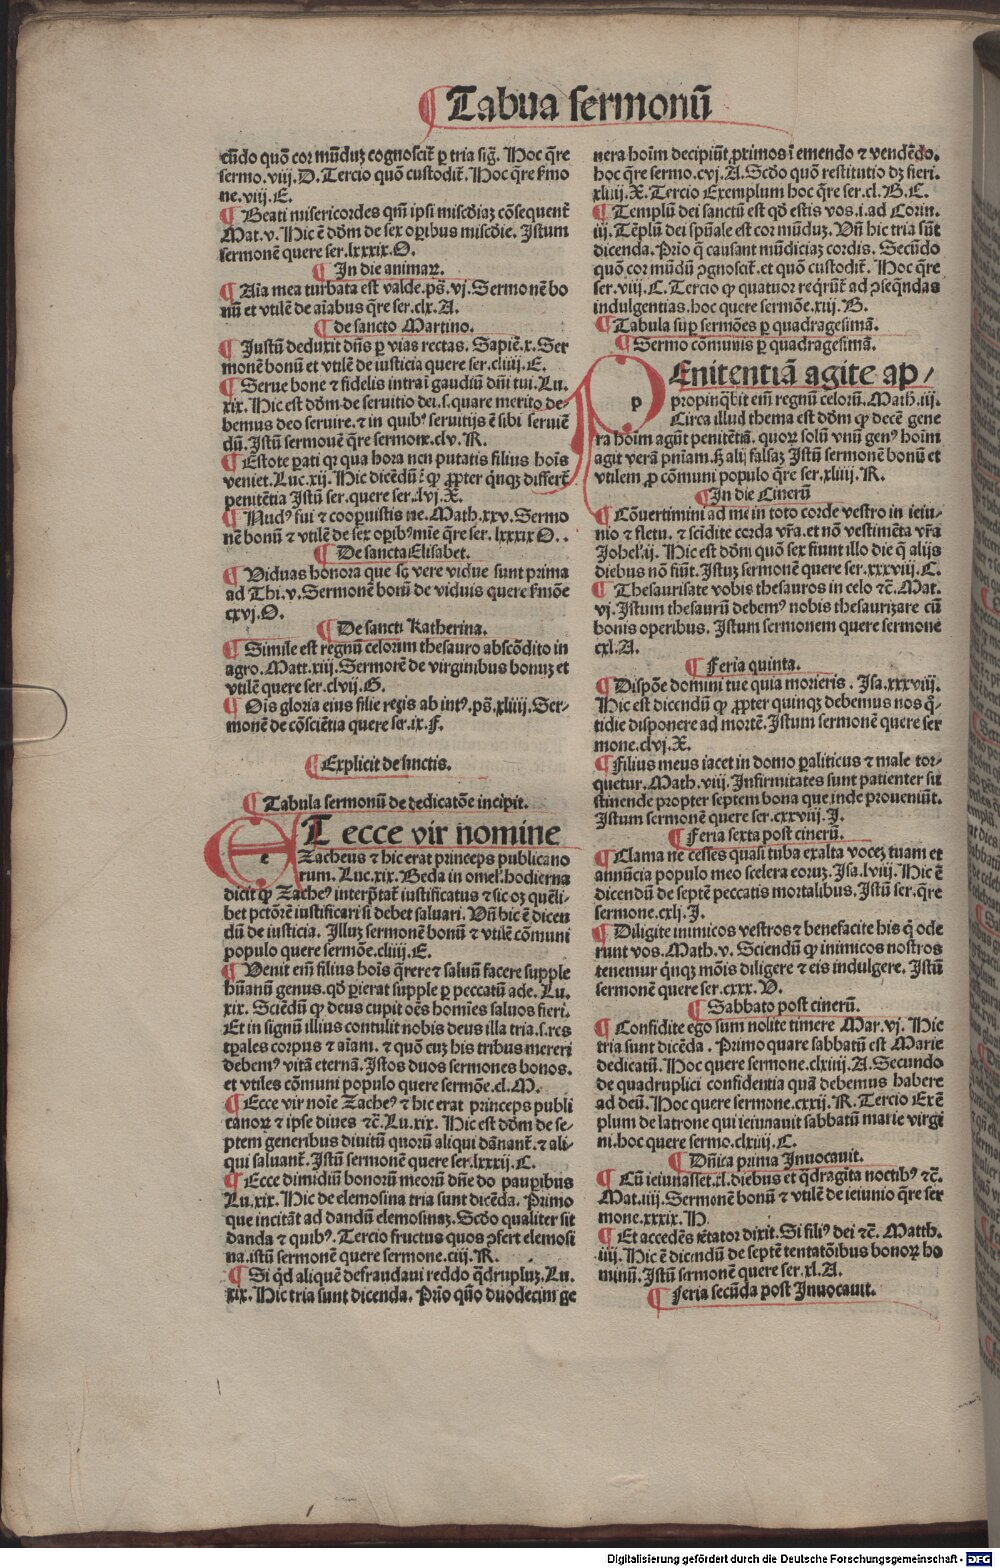 ¶ Tabua sermonū
cūdo quō cor mūduȝ cognoscit᷑ ꝑ tria siḡ. Hoc q̄re
sermo.viij.D. Tercio quō custodit᷑. Hoc q̄re s̄mo
ne.viij.E.
¶ Beati misericordes qm̄ ipsi misc̄diaȝ cōsequent᷑
Mat.v. Hic ē dōm de sex oꝑibus misc̄die. Istum
sermonē quere ser.lxxxix.O.
¶ In die animaꝝ.
¶ Aīa mea turbata est valde.ps̄.vj. Sermonē bo
nū et vtilē de aīabus q̄re ser.clx.A.
¶ de sancto Martino.
¶ Justū deduxit dn̄s ꝑ vias rectas. Sapiē.x. Ser
monē bonū et vtilē de iusticia quere ser.cliiij.E.
¶ Serue bone ⁊ fidelis intra ī gaudiū dn̄i tui. Lu.
xix. Hic est dōm de seruitio dei.s.quare merito de⸗
bemus deo seruire.⁊ in quibꝰ seruitijs ē sibi seruiē
dū. Istū sermonē q̄re sermone.clv.R.
¶ Estote ꝑati qꝛ qua hora non putatis filius hoīs
veniet. Luc.xij. Hic dicēdū ē ꝙ ꝓpter q̄nqȝ differt᷑
penitētia Istū ser.quere ser.lvj.X.
¶ Nudꝰ fui ⁊ cooꝑuistis me. Math.xxv. Sermo
nē bonū ⁊ vtilē de sex oꝑibꝰ mīe q̄re ser.lxxxix O..
¶ De sancta Elisabet.
¶ Viduas honora que sȩ vere vidue sunt prima
ad Thi.v. Sermonē bonū de viduis quere s̄mōe
cxvj.O.
¶ De sancti Katherina.
¶ Simile est regnū celorum thesauro abscōdito in
agro. Matt.xiij. Sermonē de virginibus bonuȝ et
vtilē quere ser.clvij.G.
¶ Oīs gloria eius filie regis ab intꝰ.ps̄.xliiij. Ser⸗
monē de cōsciētia quere ser.ix.F.
¶ Explicit de sanctis.
¶ Tabula sermonū de dedicatōe incipit.
ET ecce vir nomine
Zacheus ⁊ hic erat princeps publicano
rum. Luc.xix. Beda in omel̓.hodierna
dicit ꝙ Zacheꝰ interp̄tat᷑ iustificatus ⁊ sic oȝ quēli⸗
bet pctōrē iustificari si debet saluari. Vn̄ hic ē dicen
dū de iusticia. Illuȝ sermonē bonū ⁊ vtilē cōmuni
populo quere sermōe.cliiij.E.
¶ Venit em̄ filius hoīs q̄rere ⁊ saluū facere supple
hūanū genus.qd̄ ꝑierat supple ꝑ peccatū ade. Lu.
xix. Sciēdū ꝙ deus cupit oēs homīes saluos fieri.
Et in signū illius contulit nobis deus illa tria.s.res
tꝑales corpus ⁊ aīam. ⁊ quō cuȝ his tribus mereri
debemꝰ vitā eternā. Istos duos sermones bonos.
et vtiles cōmuni populo quere sermōe.cl.M.
¶ Ecce vir noīe Zacheꝰ ⁊ hic erat princeps publi
canoꝝ ⁊ ipse diues ⁊c̄. Lu.xix. Hic est dōm de se⸗
ptem generibus diuitū quorū aliqui dānant᷑.⁊ ali⸗
qui saluant᷑. Istū sermonē quere ser.lxxxij.C.
¶ Ecce dimidiū bonorū meorū dn̄e do pauꝑibus
Lu.xix. Hic de elemosina tria sunt dicēda. Primo
que incitāt ad dandū elemosinaȝ. Scd̄o qualiter sit
danda ⁊ quibꝰ. Tercio fructus quos ꝓfert elemosi
na.istū sermonē quere sermone.ciij.R.
¶ Si qd̄ aliquē defraudaui reddo q̄drupluȝ. Lu.
xix. Hic tria sunt dicenda. Prīo quō duodecim ge
nera hoīm decipiūt ꝓximos ī emendo ⁊ vendēdo.
hoc q̄re sermo.cvj.A. Scd̄o quō restitutio dȝ fieri.
xliij.X. Tercio Exemplum hoc q̄re ser.cl.B.C.
¶ Templū dei sanctū est qd̄ estis vos.i.ad Corin.
iij. Tēplū dei spūale est cor mūduȝ. Vn̄ hic tria sūt
dicenda. Prīo q̄ causant mūdiciaȝ cordis. Secūdo
quō cor mūdū ꝯgnoscit᷑.et quō custodit᷑. Hoc q̄re
ser.viij.C. Tercio ꝙ quatuor req̄rūt᷑ ad ꝯseq̄ndas
indulgentias.hoc quere sermōe.xiij.B.
¶ Tabula suꝑ sermōes ꝑ quadragesimā.
¶ Sermo cōmunis ꝑ quadragesimā.
PEnitentiā agite ap⸗
propinq̄bit em̄ regnū celorū. Math.iij.
Circa illud thema est dōm ꝙ decē gene
ra hoīm agūt penitētiā. quoꝝ solū vnū genꝰ hoīm
agit verā pn̄iam.sȝ alij falsaȝ Istū sermonē bonū et
vtilem ꝓ cōmuni populo q̄re ser.xliiij.R.
¶ In die Cinerū
¶ Cōuertimini ad me in toto corde vestro in ieiu⸗
nio ⁊ fletu. ⁊ scīdite corda vr̄a.et nō vestimēta vr̄a
Johel.ij. Hic est dōm quō sex fiunt illo die q̄ alijs
diebus nō fiūt. Istuȝ sermonē quere ser.xxxviij.C.
¶ Thesaurisate vobis thesauros in celo ⁊c̄. Mat.
vj. Istum thesaurū debemꝰ nobis thesaurizare cū
bonis operibus. Istum sermonem quere sermone
cxl.A.
¶ Feria quinta.
¶ Dispōe domini tue quia morieris. Isa.xxxviij.
Hic est dicendū ꝙ ꝓpter quinqȝ debemus nos q̄⸗
tidie disponere ad mortē. Istum sermonē quere ser
mone.clvj.X.
¶ Filius meus iacet in domo ꝑaliticus ⁊ male tor⸗
quetur. Math.viij. Infirmitates sunt patienter su
stinende propter septem bona que inde proueniūt.
Istum sermonē quere ser.cxxviij.J.
¶ Feria sexta post cinerū.
¶ Clama ne cesses quasi tuba exalta voceȝ tuam et
annūcia populo meo scelera eoruȝ. Isa.lviij. Hic ē
dicendū de septē peccatis mortalibus. Istū ser.q̄re
sermone.cxlj.J.
¶ Diligite inimicos vestros ⁊ benefacite his q̄ ode
runt vos. Math.v. Sciendū ꝙ inimicos nostros
tenemur q̄nqȝ mōis diligere ⁊ eis indulgere. Istū
sermonē quere ser.cxxx.V.
¶ Sabbato post cinerū.
¶ Confidite ego sum nolite timere Mar.vj. Hic
tria sunt dicēda. Primo quare sabbatū est Marie
dedicatū. Hoc quere sermone.clxiiij.A. Secundo
de quadruplici confidentia quā debemus habere
ad deū. Hoc quere sermone.cxxij.R. Tercio Exē
plum de latrone qui ieiunauit sabbatū marie virgi
ni.hoc quere sermo.clxiiij.C.
¶ Dn̄ica prima Inuocauit.
¶ Cū ieiunasset.xl.diebus et q̄dragīta noctibꝰ ⁊c̄.
Mat.iiij. Sermonē bonū ⁊ vtilē de ieiunio q̄re ser
mone.xxxix.H
¶ Et accedēs tētator dixit. Si filiꝰ dei ⁊c̄. Matth.
iiij. Hic ē dicendū de septē tentatōibus bonoꝝ ho
minū. Istū sermonē quere ser.xl.A.
¶ Feria secūda post Inuocauit.
Digitalisierung gefördert durch die Deutsche Forschungsgemeinschaft - DFG